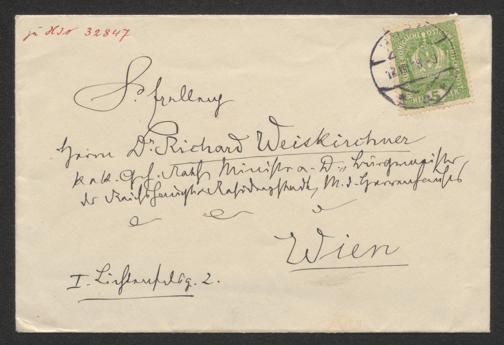 zu H.S.O 32847
Sr. Exzellenz
Herrn Dr. Richard Weiskirchner
k. u. k. Geh. Rath, Minister a. D., Bürgermeister,
der Reichshaupt u. Residenzstadt, M. d. Herrenhauses
Wien
I. Lichtenfelsg. 2.